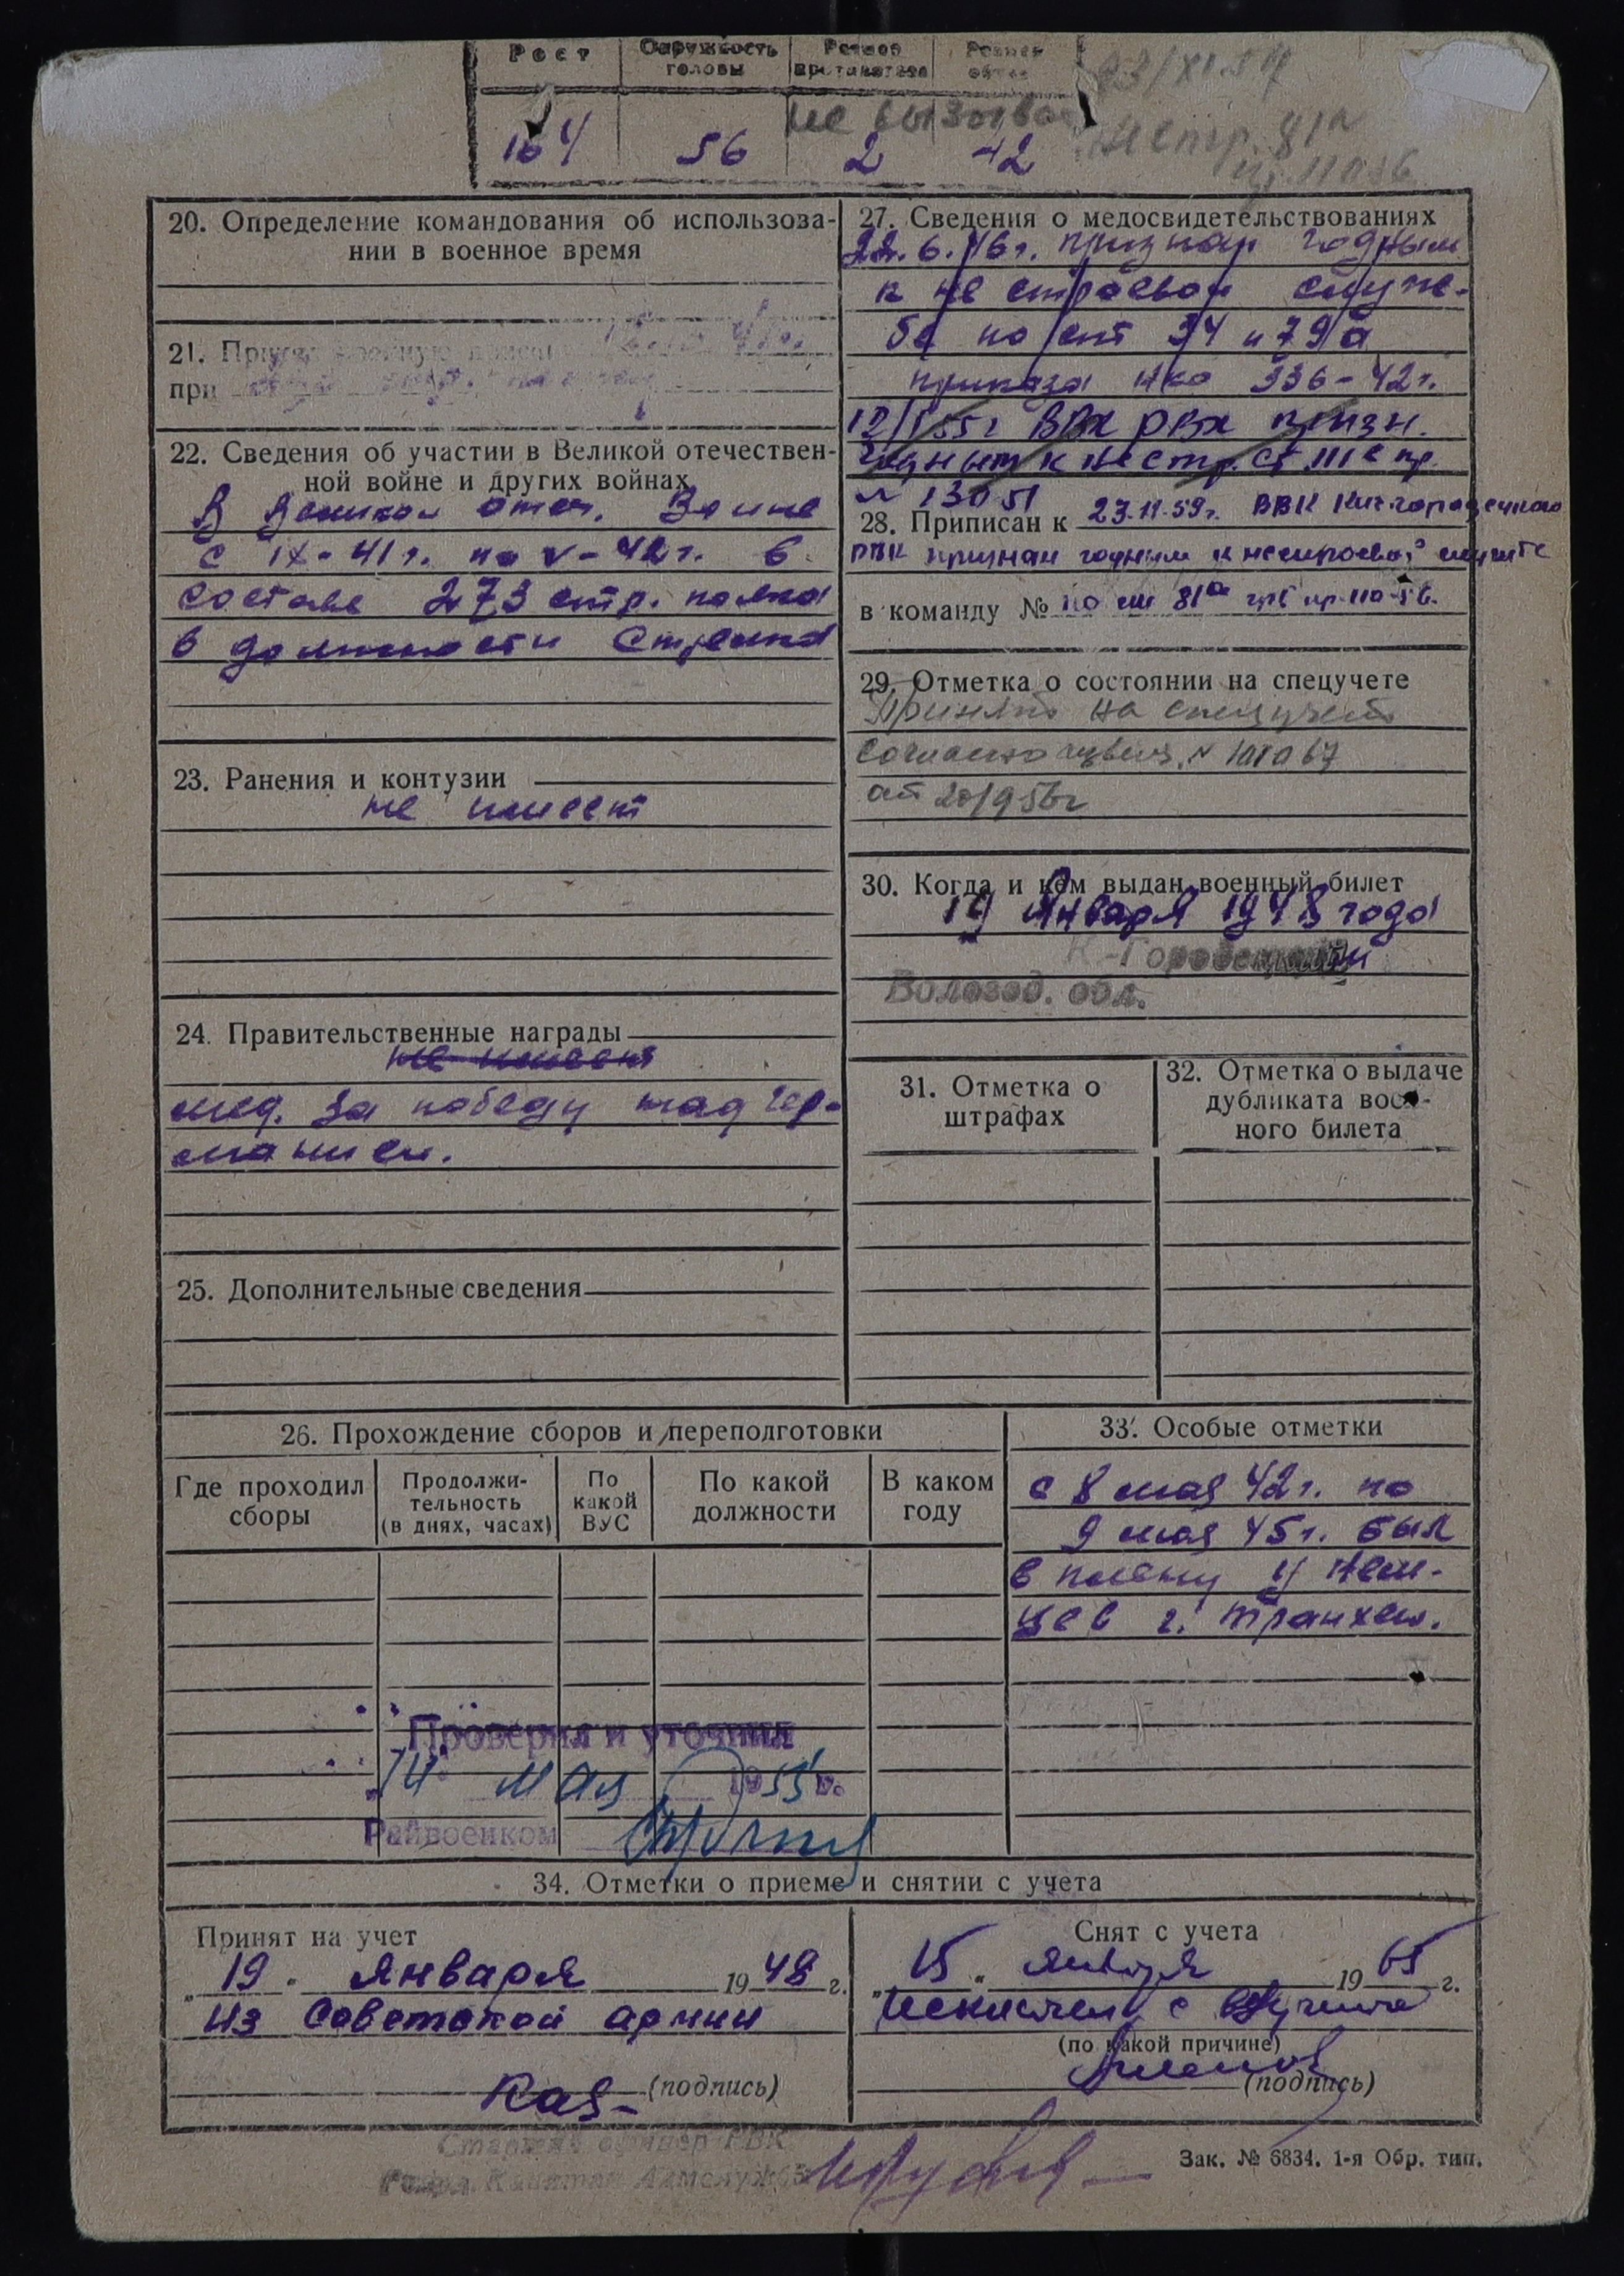 Рост
Окружность головы
Размер противогаза
Размер обуви
23/XI.59
не вызовва
164 56 2 42
нестр. 81а
20. Определение командования об использова-
нии в военное время
21. 
при
22. Сведения об участии в Великой отечествен-
ной войне и других войнах
В Великой отеч. Войне
с IX-41г. по V-42г. в
составе 273 стр. полка
в должности Стрелка
23. Ранения и контузии
не имеет
24. Правительственные награды
не имеет
мед. За победу над Гер-
манией.
25. Дополнительные сведения
27. Сведения о медосвидетельствованиях
22.6.46г. признан годным
к не строевой служ-
бе по ст 34 и 79а
приказа НКО 336-42г.
12/I 55г ВВК РВК призн.
годным к нестр. ст. III е пр.
28. Приписан к 23.11.59г. ВВК Кич-городецкого
РВК признан годным к нестроевой службе
в команду № по ст 81а пр. 110-56.
29. Отметка о состоянии на спецучете
Принят на спецучет
согласно извещ. №
от 20/9 56г
30. Когда и кем выдан военный билет
19 Января 1948 года
К-Городецкий
Вологод. обл.
31. Отметка о
штрафах
32. Отметка о выдаче
дубликата воен-
ного билета
26. Прохождение сборов и переподготовки
Где проходил
сборы
Продолжи-
тельность
(в днях, часах)
По
какой
ВУС
По какой
должности
В каком
году
33. Особые отметки
с 8 мая 42г. по
9 мая 45г. был
в плену у нем-
цев г. Транхем.
Проверил и уточнил
"14" мая 1955 г.
Райвоенком
34. Отметки о приеме и снятии с учета
Принят на учет
„19" Января 1948 г.
из Советской армии
(подпись)
Снят с учета
„15" января 1965 г.
Исключен с в/учета
(по какой причине)
(подпись)
Старший офицер РВК
Капитан
Зак. № 6834. 1-я Обр. тип.